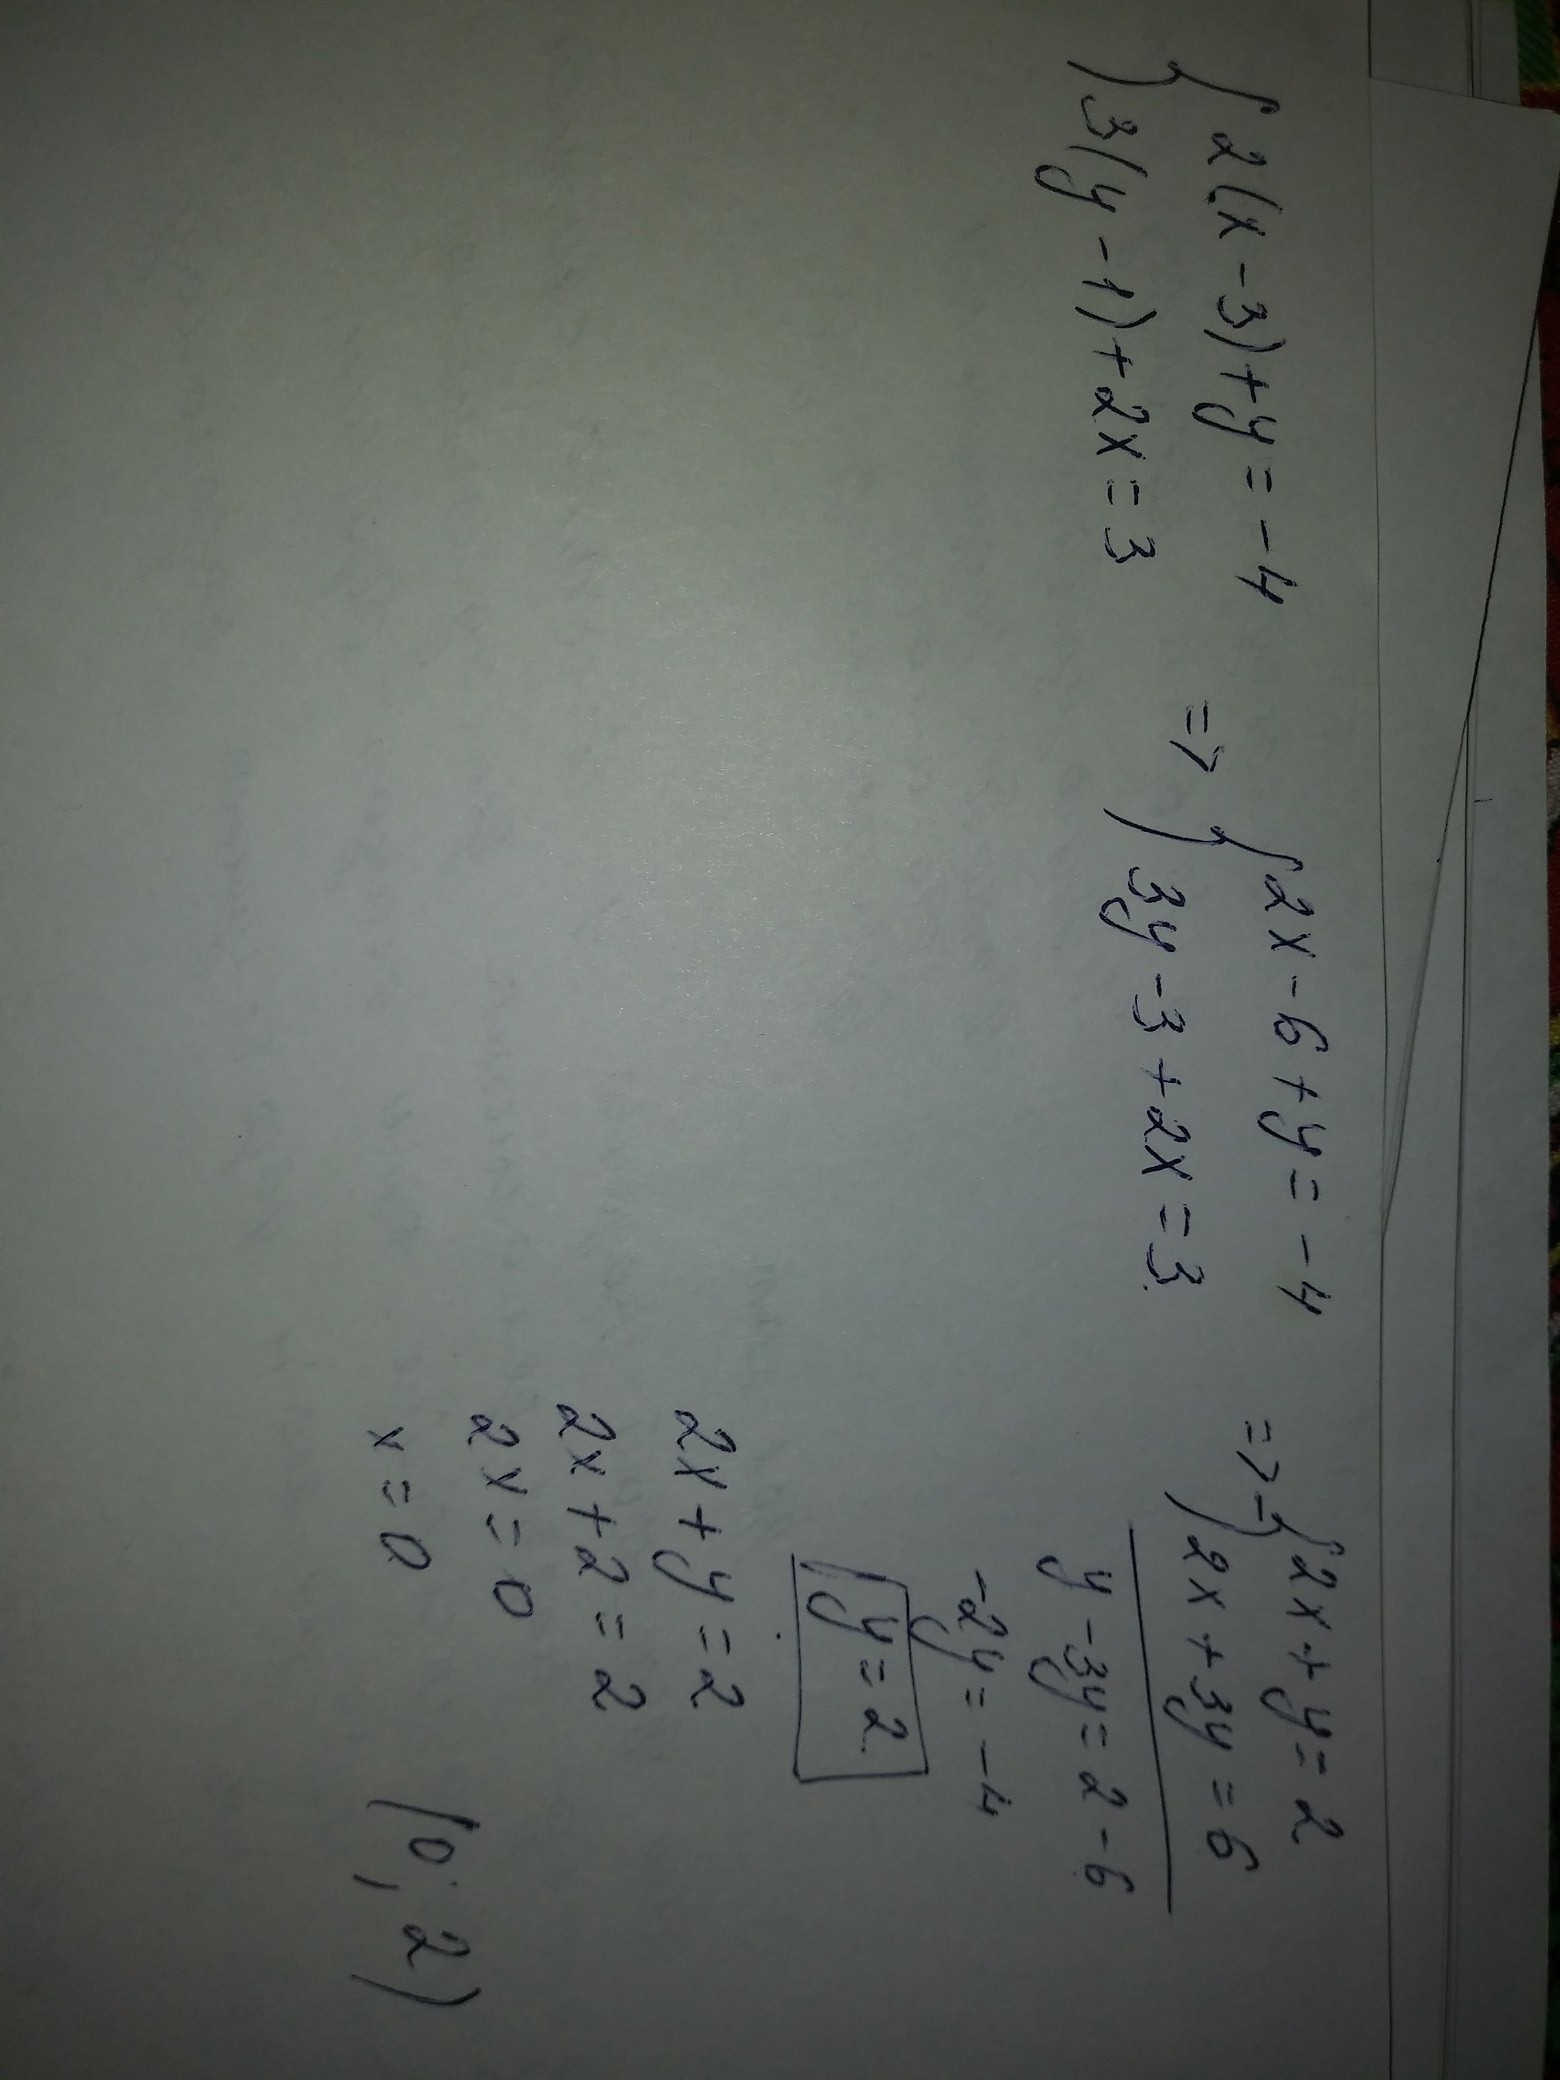 { 2(x-3)+y=-4
3(y-1)+2x=3
=> { 2x-6+y=-4
3y-3+2x=3
=> - { 2x+y=2
2x+3y=6
y-3y=2-6
-2y=-4
y=2
2x+y=2
2x+2=2
2x=0
x=0
(0; 2)